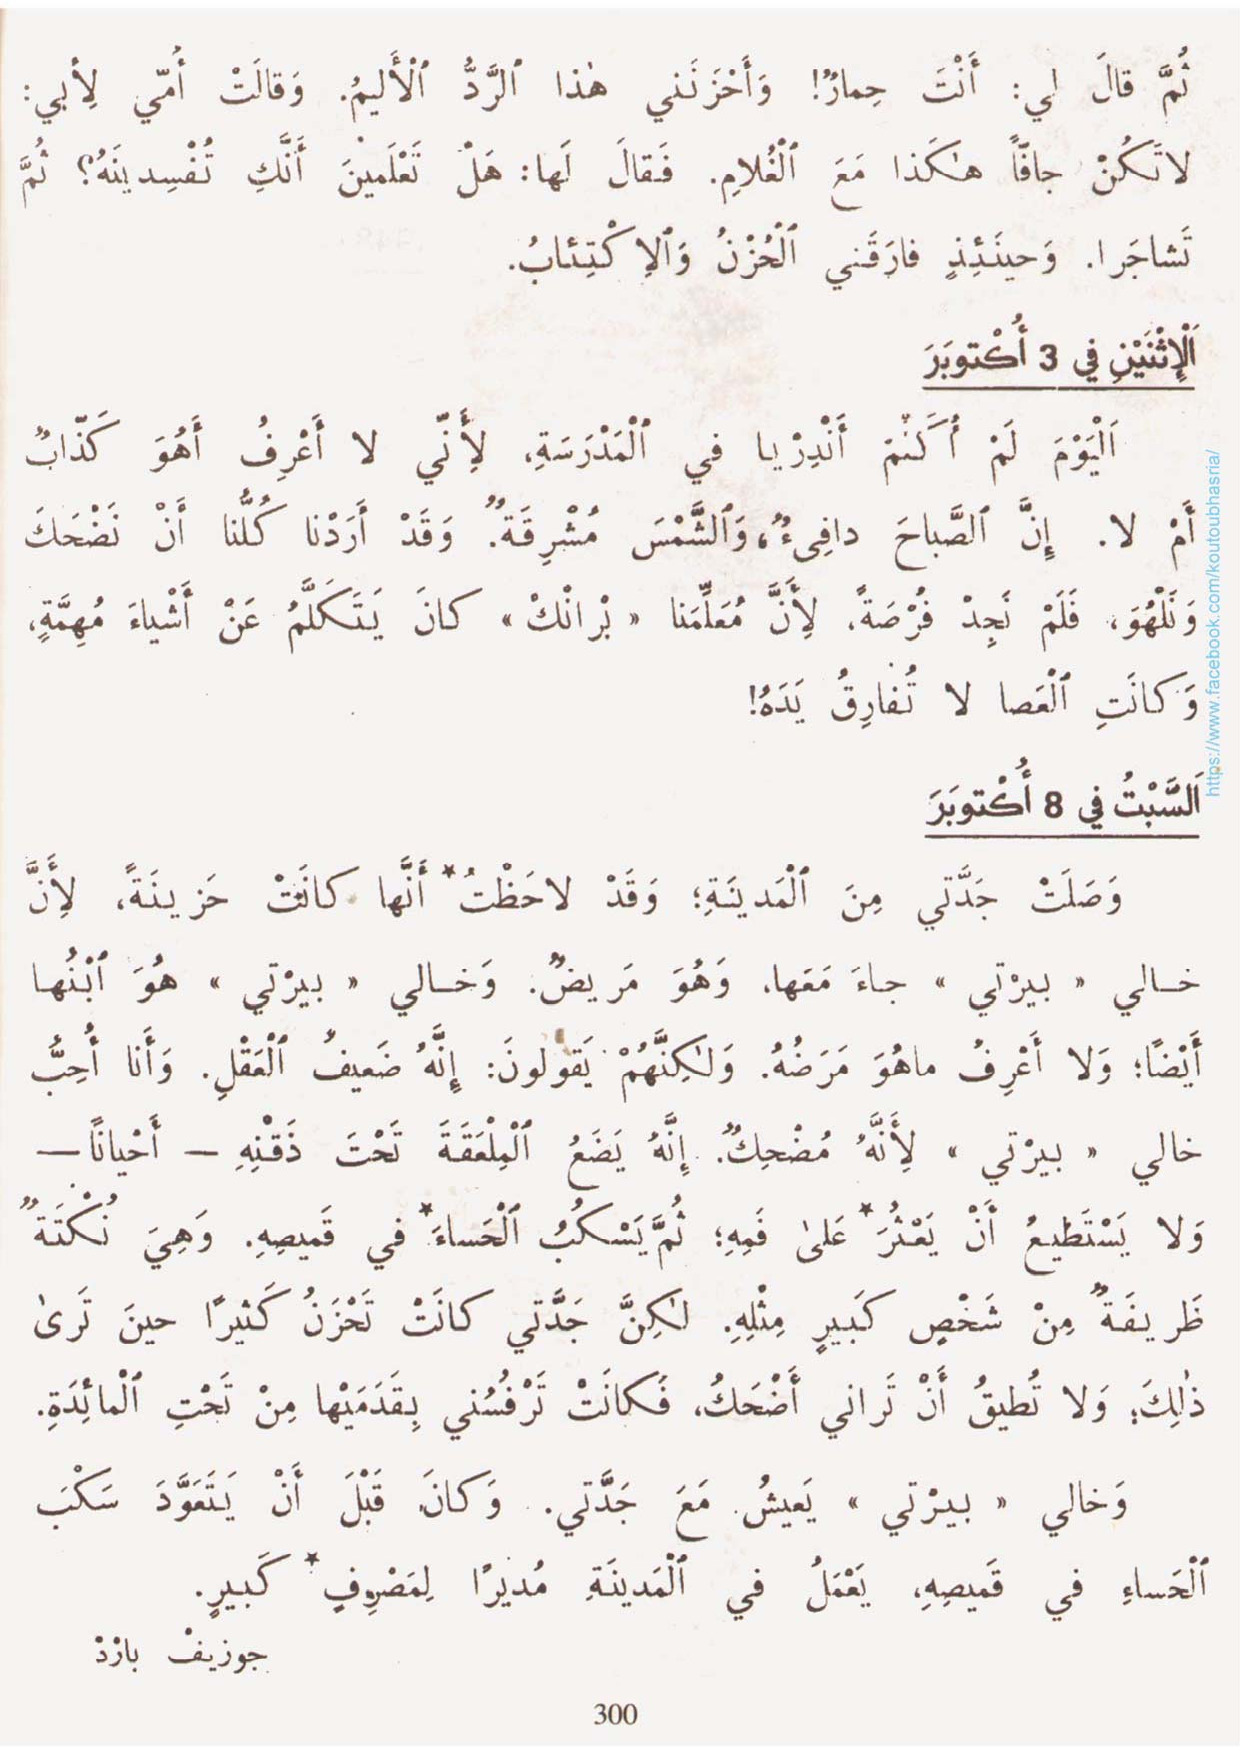 ثُمَّ قالَ لي: أَنْتَ حِمارٌ! وَأَحْزَنَني هٰذا ٱلرَّدُّ ٱلْأَليمُ. وَقالَتْ أُمّي لِأَبي:
لاتَكُنْ جافّاً هٰكَذا مَعَ ٱلْغُلامِ. فَقالَ لَها: هَلْ تَعْلَمينَ أَنَّكِ تُفْسِدينَهُ؟ ثُمَّ
تَشاجَرا. وَحينَئِذٍ فارَقَني ٱلْحُزْنُ وَٱلاِكْتِئابُ.
اَلْإِثْنَيْنِ في 3 أُكْتوبَرَ
اَلْيَوْمَ لَمْ أُكَلِّمْ أَنْدِرْيا في ٱلْمَدْرَسَةِ، لِأَنّي لا أَعْرِفُ أَهُوَ كَذّابٌ
أَمْ لا. إِنَّ ٱلصَّباحَ دافِىءٌ، وَٱلشَّمْسَ مُشْرِقَةٌ. وَقَدْ أَرَدْنا كُلُّنا أَنْ نَضْحَكَ
وَنَلْهُوَ، فَلَمْ نَجِدْ فُرْصَةً، لِأَنَّ مُعَلِّمَنا « بْرانْكْ » كانَ يَتَكَلَّمُ عَنْ أَشْياءَ مُهِمَّةٍ،
وَكانَتِ ٱلْعَصا لا تُفارِقُ يَدَهُ!
اَلسَّبْتُ في 8 أُكْتوبَرَ
وَصَلَتْ جَدَّتي مِنَ ٱلْمَدينَةِ؛ وَقَدْ لاحَظْتُ* أَنَّها كانَتْ حَزينَةً، لِأَنَّ
خالي « بيرْتي » جاءَ مَعَها، وَهُوَ مَريضٌ. وَخالي « بيرْتي » هُوَ ٱبْنُها
أَيْضًا؛ وَلا أَعْرِفُ ماهُوَ مَرَضُهُ. وَلٰكِنَّهُمْ يَقولونَ: إِنَّهُ ضَعيفُ ٱلْعَقْلِ. وَأَنا أُحِبُّ
خالي « بيرْتي » لِأَنَّهُ مُضْحِكٌ. إِنَّهُ يَضَعُ ٱلْمِلْعَقَةَ تَحْتَ ذَقْنِهِ – أَحْيانًا –
وَلا يَسْتَطيعُ أَنْ يَعْثُرَ* عَلىٰ فَمِهِ؛ ثُمَّ يَسْكُبُ ٱلْحَساءَ* في قَميصِهِ. وَهِيَ نُكْتَةٌ
ظَريفَةٌ مِنْ شَخْصٍ كَبيرٍ مِثْلِهِ. لٰكِنَّ جَدَّتي كانَتْ تَحْزَنُ كَثيرًا حينَ تَرىٰ
ذٰلِكَ؛ وَلا تُطيقُ أَنْ تَراني أَضْحَكُ، فَكانَتْ تَرْفُسُني بِقَدَمَيْها مِنْ تَحْتِ ٱلْمائِدَةِ.
وَخالي « بيرْتي » يَعيشُ مَعَ جَدَّتي. وَكانَ قَبْلَ أَنْ يَتَعَوَّدَ سَكْبَ
ٱلْحَساءِ في قَميصِهِ، يَعْمَلُ في ٱلْمَدينَةِ مُديرًا لِمَصْرِفٍ* كَبيرٍ.
جوزيفْ بارْدْ
300
https://www.facebook.com/koutoubhasria/